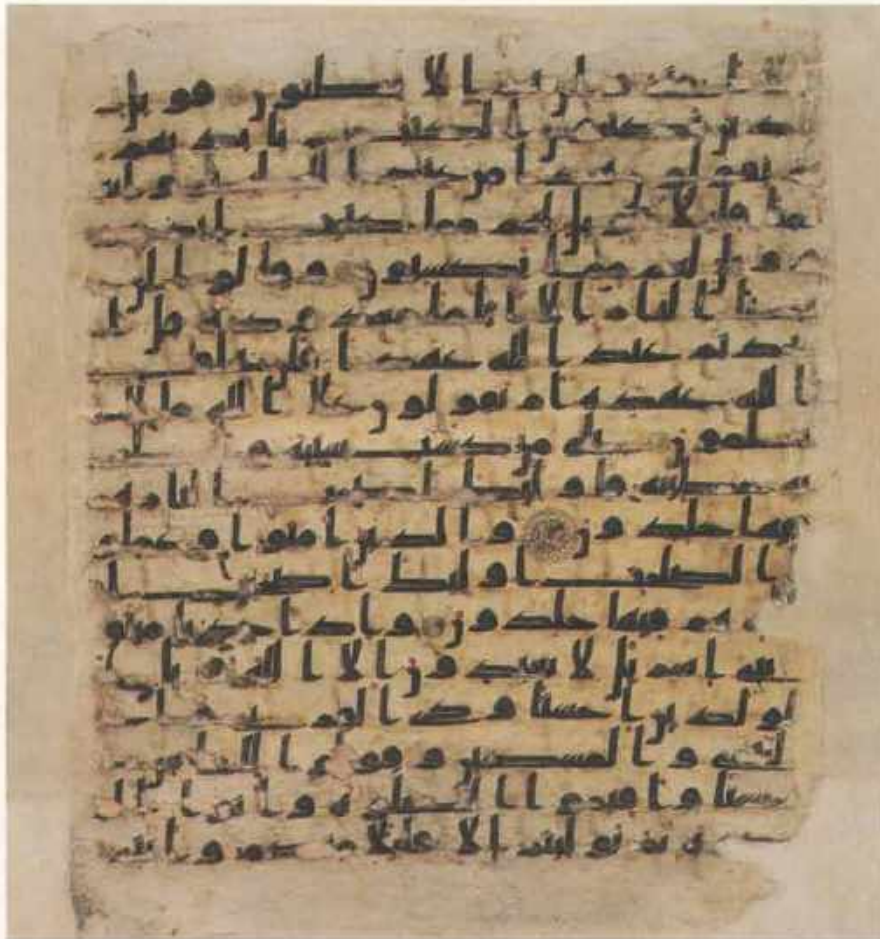 الا اماني وان هم الا يظنون فويل
للذين يكتبون الكتب بايديهم
ثم يقولون هذا من عند الله ليشتروا به
ثمنا قليلا فويل لهم مما كتبت ايديهم
وويل لهم مما يكسبون وقالوا لن
تمسنا النار الا اياما معدودة قل ا
تخذتم عند الله عهدا فلن يخلف
الله عهده ام تقولون على الله ما لا
تعلمون بلى من كسب سيئة واحطت
به خطيته فاولئك اصحب النار هم
فيها خلدون والذين امنوا وعملوا
الصلحت اولئك اصحب ا
هم فيها خلدون واذ اخذنا ميثق
بني اسريل لا تعبدون الا الله وبا
لولدين احسنا وذي القربى وا
ليتمى والمسكين وقولوا للناس
حسنا واقيموا الصلوة واتوا ال
ثم توليتم الا قليلا منكم وانتم